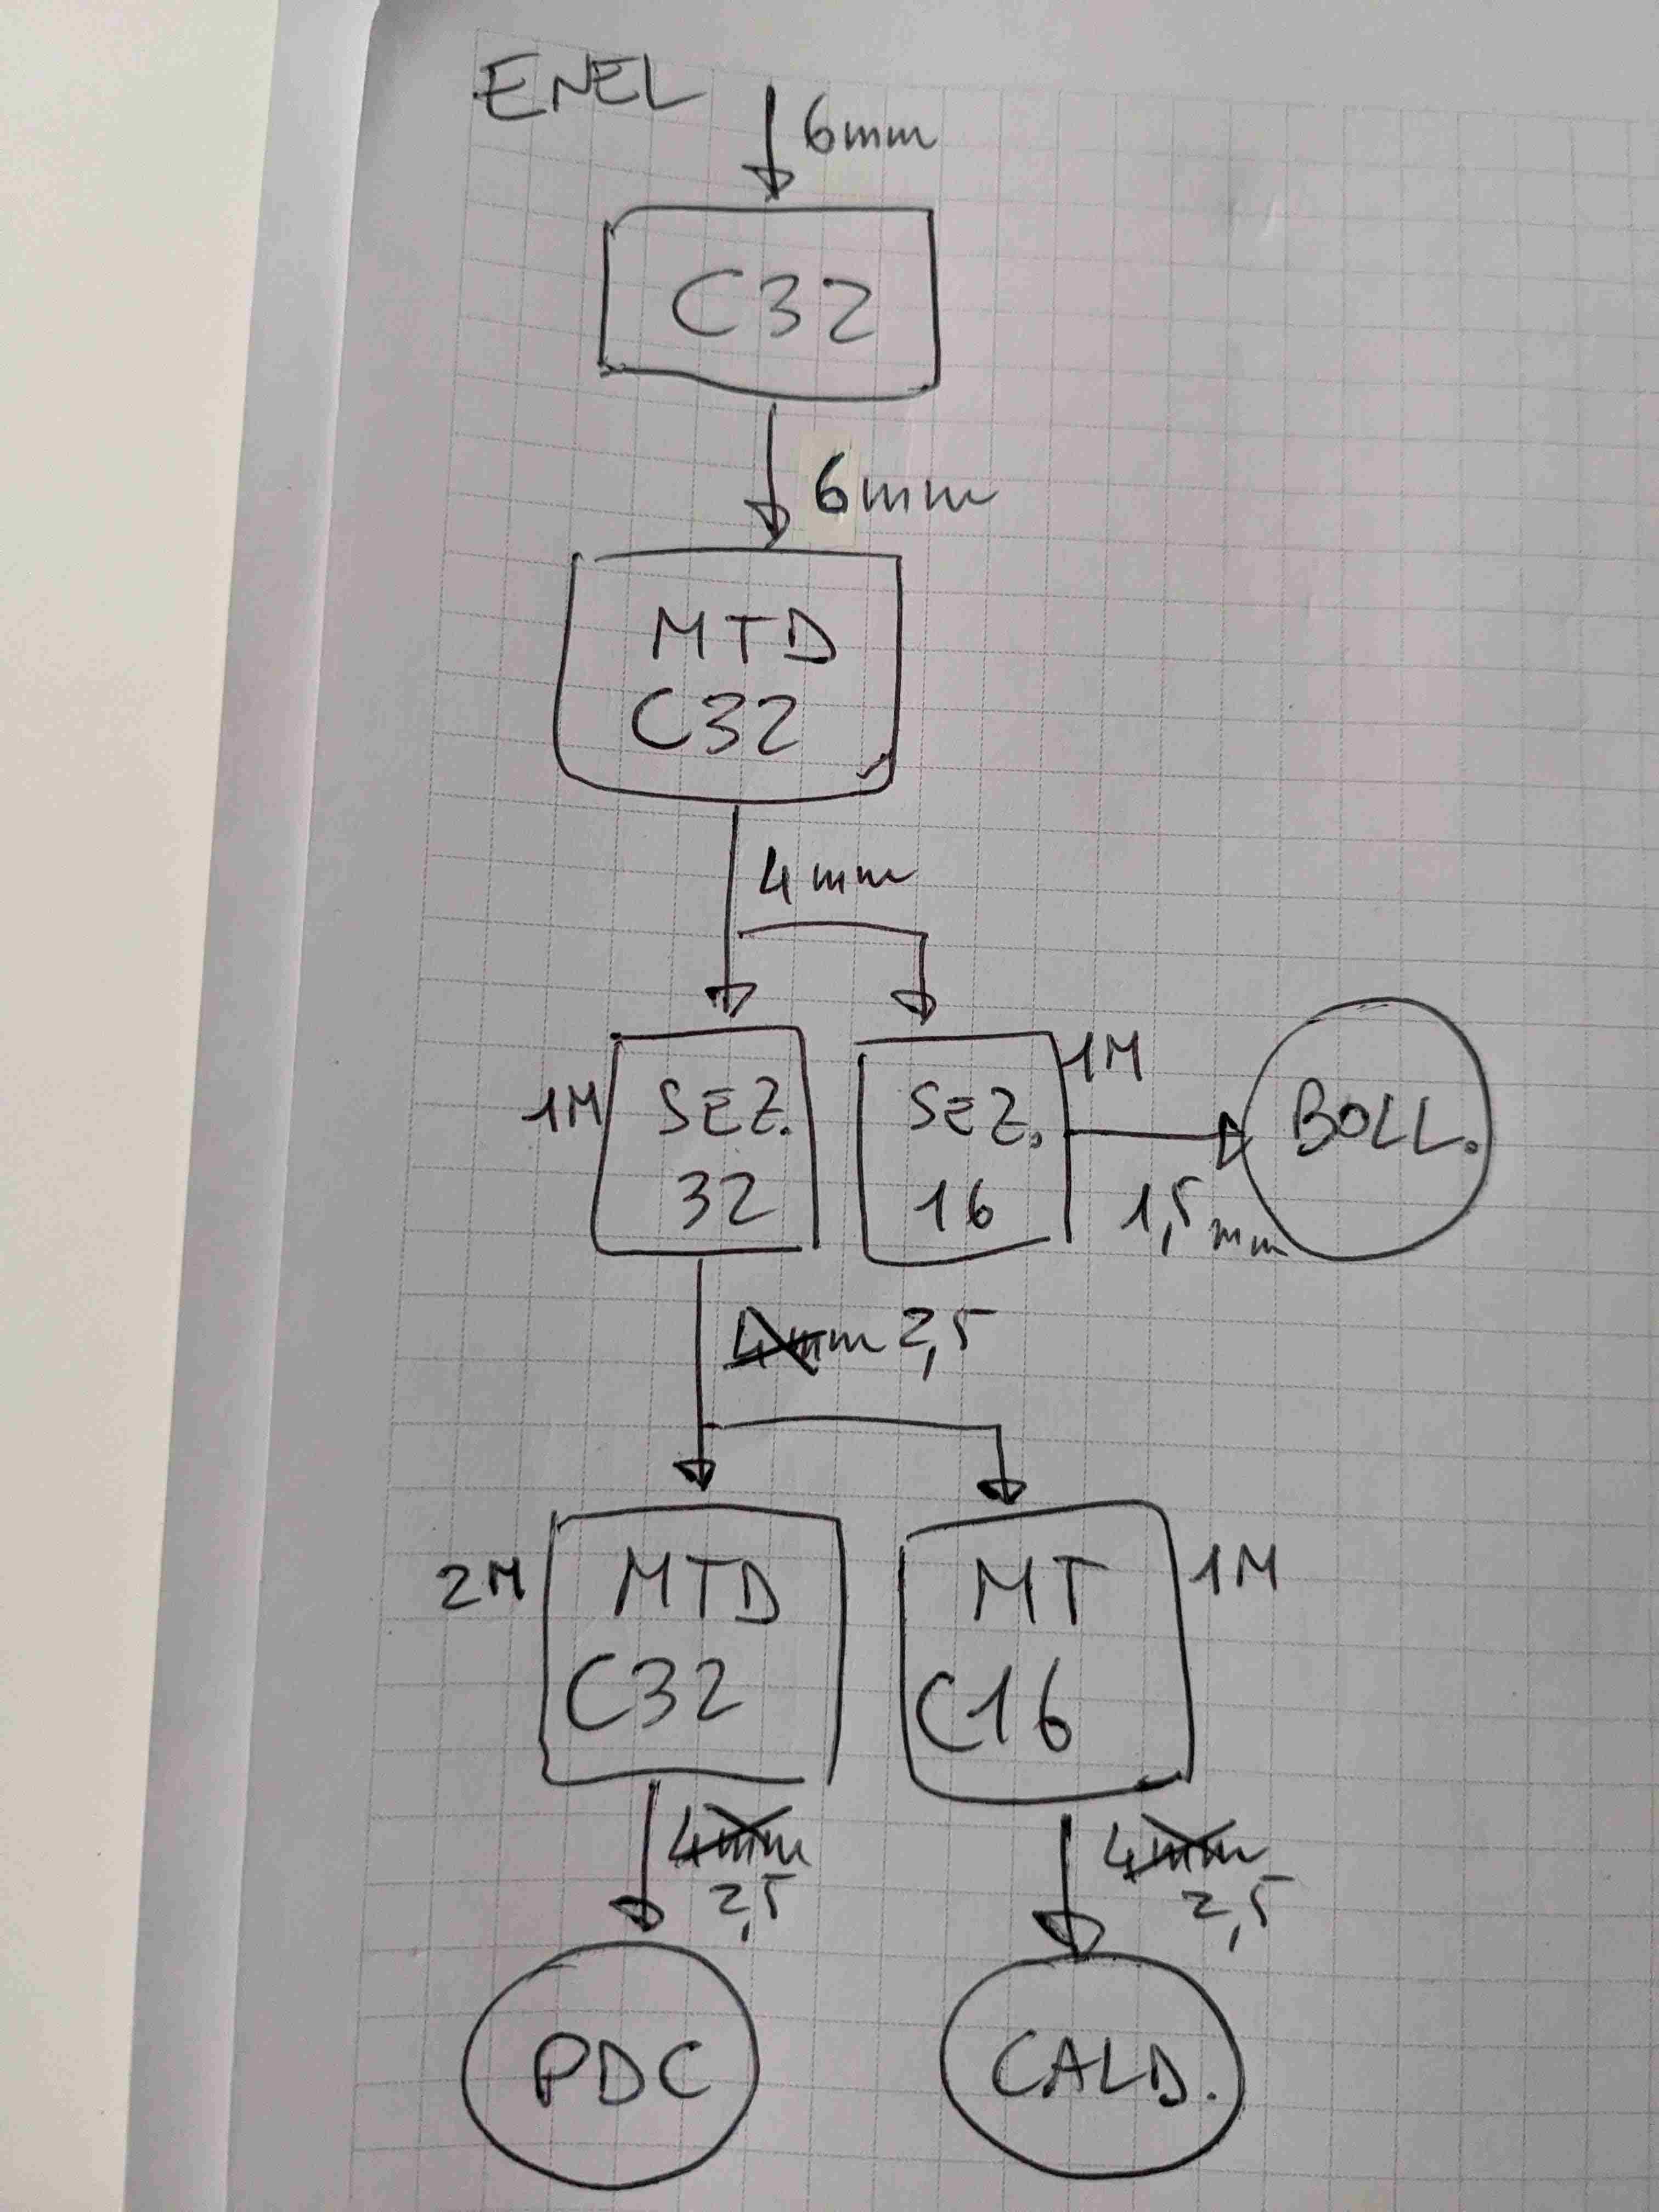 ENEL
6mm
C32
6mm
MTD
C32
4mm
1M
SEZ.
32
SEZ.
16
1M
1,5mm
BOLL.
4mm 2,5
2M
MTD
C32
MT
C16
1M
4mm
2,5
4mm
2,5
PDC
CALD.